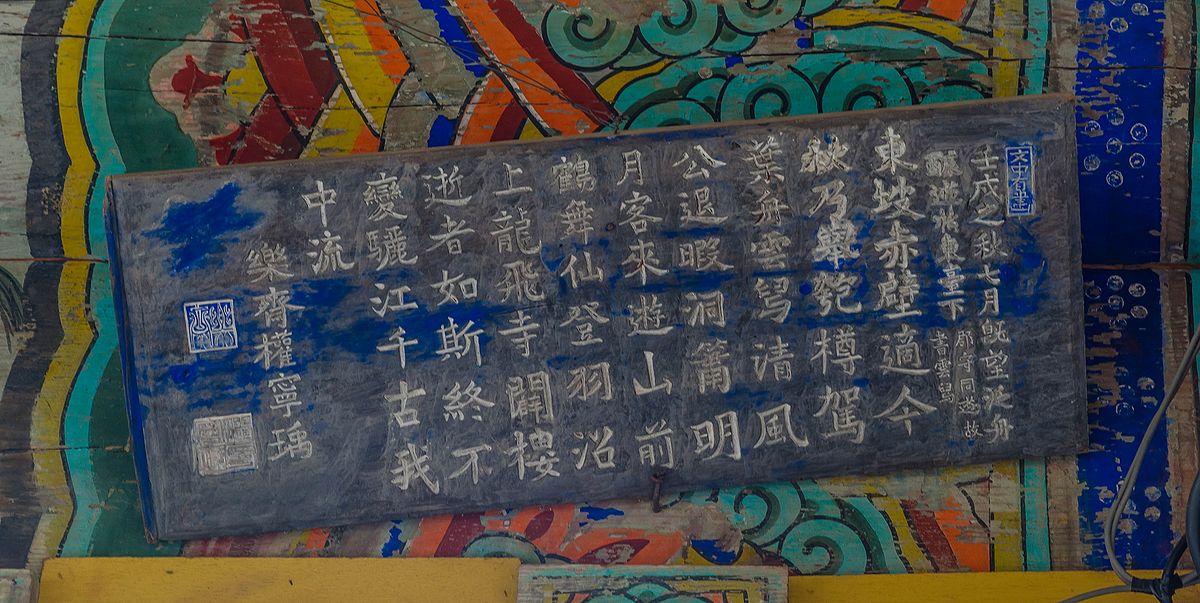 壬戌之秋七月旣望泛舟
東臺下
郡守同遊故
書雲舃
東坡赤壁適今
秋乃擧匏樽駕
葉舟雲舃清風
公退暇洞簫明
月客來遊山前
鶴舞仙登羽沼
上龍飛寺闢樓
逝者如斯終不
變驪江千古我
中流
樂齊權寧瑀